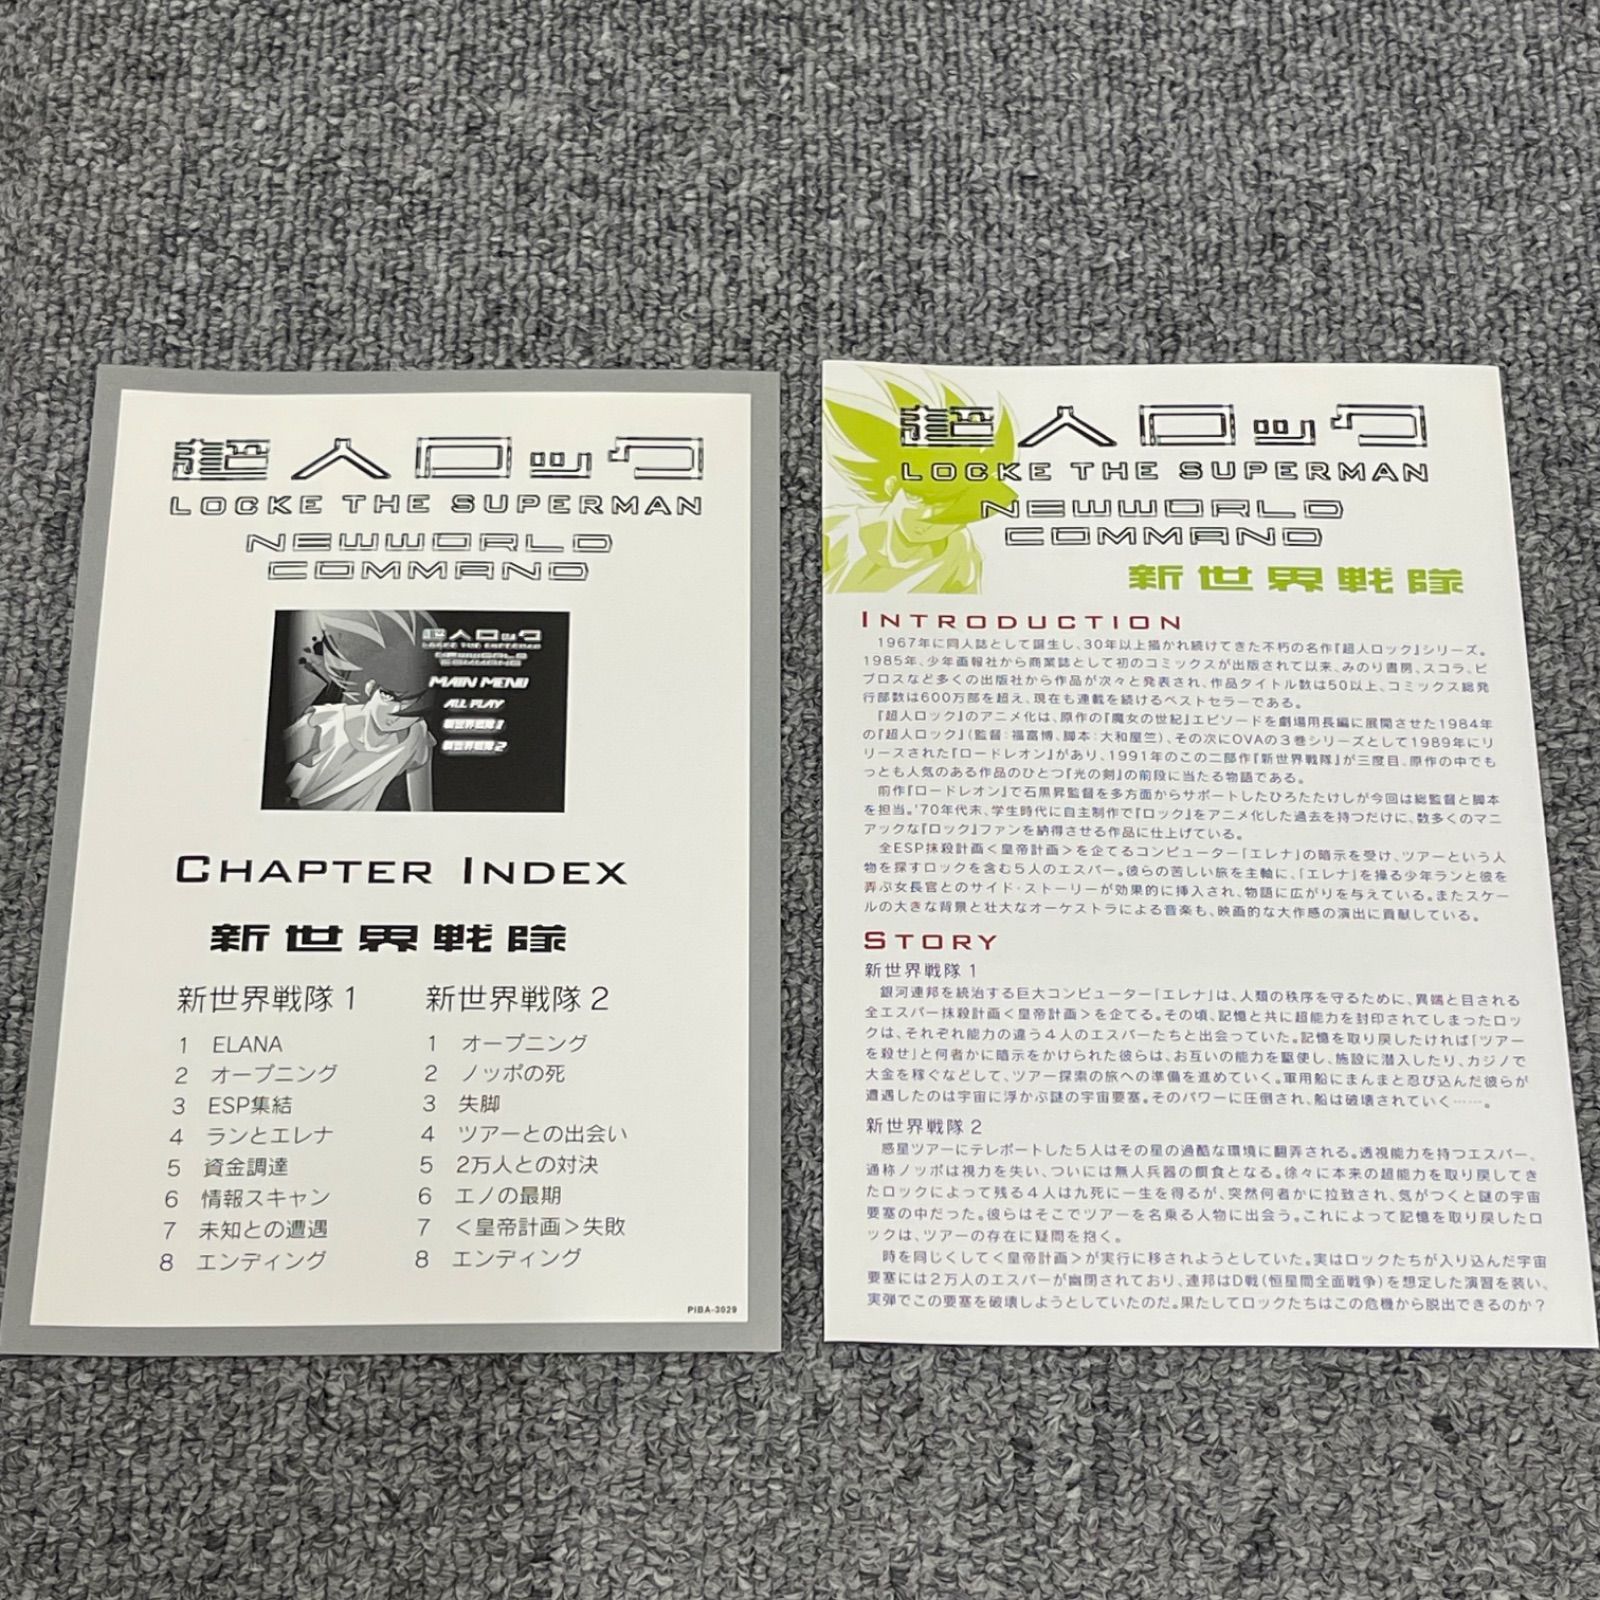 超人ロック
LOCKE THE SUPERMAN
NEWWORLD
COMMAND
超人ロック
LOCKE THE SUPERMAN
NEWWORLD
COMMAND
MAIN MENU
ALL PLAY
新世界戦隊1
新世界戦隊2
CHAPTER INDEX
新世界戦隊
新世界戦隊1
1 ELANA
2 オープニング
3 ESP集結
4 ランとエレナ
5 資金調達
6 情報スキャン
7 未知との遭遇
8 エンディング
新世界戦隊2
1 オープニング
2 ノッポの死
3 失脚
4 ツアーとの出会い
5 2万人との対決
6 エノの最期
7 <皇帝計画>失敗
8 エンディング
PIBA-3029
超人ロック
LOCKE THE SUPERMAN
NEWWORLD
COMMAND
新世界戦隊
INTRODUCTION
1967年に同人誌として誕生し、30年以上描かれ続けてきた不朽の名作『超人ロック』シリーズ。
1985年、少年画報社から商業誌として初のコミックスが出版されて以来、みのり書房、スコラ、ビ
ブロスなど多くの出版社から作品が次々と発表され、作品タイトル数は50以上、コミックス総発
行部数は600万部を超え、現在も連載を続けるベストセラーである。
『超人ロック』のアニメ化は、原作の『魔女の世紀』エピソードを劇場用長編に展開させた1984年
の『超人ロック』(監督:福富博、脚本:大和屋竺)、その次にOVAの3巻シリーズとして1989年にリ
リースされた『ロードレオン』があり、1991年のこの二部作『新世界戦隊』が三度目、原作の中でも
っとも人気のある作品のひとつ『光の剣』の前段に当たる物語である。
前作『ロードレオン』で石黒昇監督を多方面からサポートしたひろたたけしが今回は総監督と脚本
を担当。'70年代末、学生時代に自主制作で『ロック』をアニメ化した過去を持つだけに、数多くのマニ
アックな『ロック』ファンを納得させる作品に仕上げている。
全ESP抹殺計画<皇帝計画>を企てるコンピューター「エレナ」の暗示を受け、ツアーという人
物を探すロックを含む5人のエスパー。彼らの苦しい旅を主軸に、「エレナ」を操る少年ランと彼を
弄ぶ女長官とのサイド・ストーリーが効果的に挿入され、物語に広がりを与えている。またスケー
ルの大きな背景と壮大なオーケストラによる音楽も、映画的な大作感の演出に貢献している。
STORY
新世界戦隊1
銀河連邦を統治する巨大コンピューター「エレナ」は、人類の秩序を守るために、異端と目される
全エスパー抹殺計画<皇帝計画>を企てる。その頃、記憶と共に超能力を封印されてしまったロッ
クは、それぞれ能力の違う4人のエスパーたちと出会っていた。記憶を取り戻したければ「ツアー
を殺せ」と何者かに暗示をかけられた彼らは、お互いの能力を駆使し、施設に潜入したり、カジノで
大金を稼ぐなどして、ツアー探索の旅への準備を進めていく。軍用船にまんまと忍び込んだ彼らが
遭遇したのは宇宙に浮かぶ謎の宇宙要塞。そのパワーに圧倒され、船は破壊されていく……。
新世界戦隊2
惑星ツアーにテレポートした5人はその星の過酷な環境に翻弄される。透視能力を持つエスパー、
通称ノッポは視力を失い、ついには無人兵器の餌食となる。徐々に本来の超能力を取り戻してき
たロックによって残る4人は九死に一生を得るが、突然何者かに拉致され、気がつくと謎の宇宙
要塞の中だった。彼らはそこでツアーを名乗る人物に出会う。これによって記憶を取り戻したロ
ックは、ツアーの存在に疑問を抱く。
時を同じくして<皇帝計画>が実行に移されようとしていた。実はロックたちが入り込んだ宇宙
要塞には2万人のエスパーが幽閉されており、連邦はD戦(恒星間全面戦争)を想定した演習を装い、
実弾でこの要塞を破壊しようとしていたのだ。果たしてロックたちはこの危機から脱出できるのか?